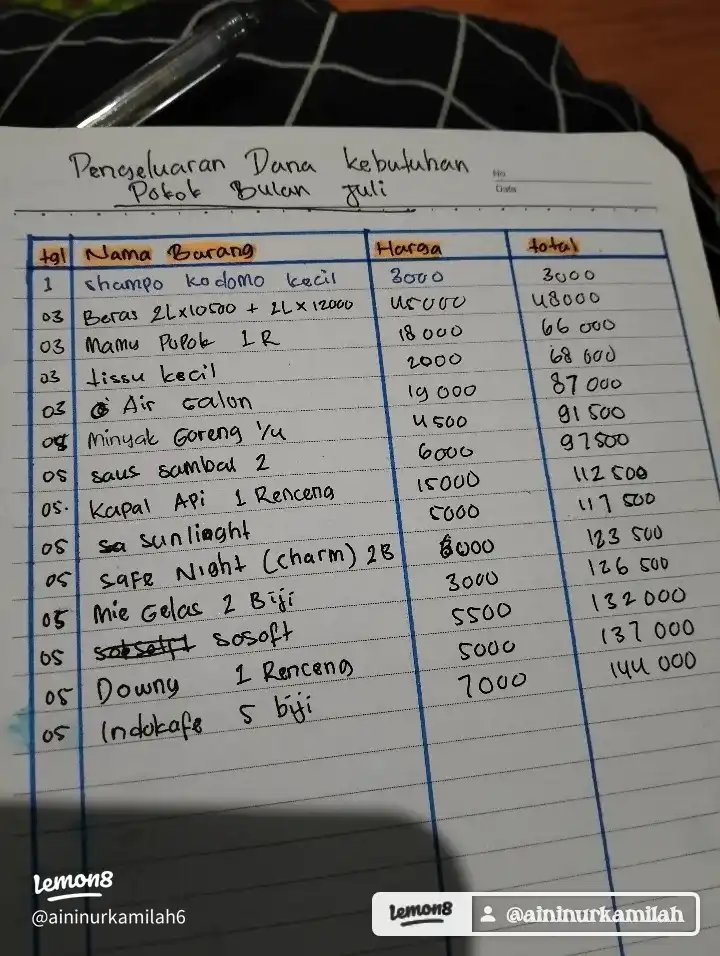 Pengeluaran Dana kebutuhan
Pokok Bulan Juli
No
Date
tgl Nama Barang Harga total
1 shampo kodomo kecil 3000 3000
03 Beras 2L x 10500 + 2L x 12000 45000 48000
03 Mamy Popok 1 R 18 000 66 000
03 tissu kecil 2000 68 000
03 Air Galon 19 000 87 000
05 Minyak Goreng 1/4 4500 91 500
05 saus sambal 2 6000 97500
05. Kapal Api 1 Renceng 15000 112 500
05 sunlieght 5000 117 500
05 Safe Night (charm) 2B 6000 123 500
05 Mie Gelas 2 Biji 3000 126 500
05 sosoft 5500 132 000
05 Downy 1 Renceng 5000 137 000
05 Indokafe 5 biji 7000 144 000
lemon8
@aininurkamilah6
lemon8 @aininurkamilah